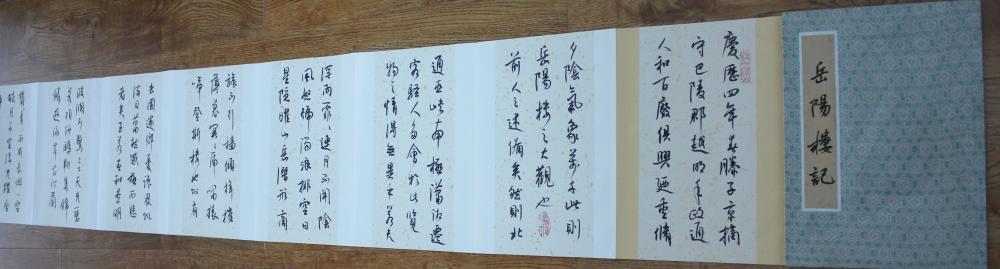 岳陽樓記
慶歷四年春滕子京謫
守巴陵郡越明年政通
人和百廢俱興廼重脩
夕陰氣象萬千此則
岳陽樓之大觀也
前人之述備矣然則北
通巫峽南極瀟湘遷
客騷人多會於此覽
物之情得無異乎若夫
淫雨霏霏連月不開陰
風怒號濁浪排空日
星隱曜山岳潛形商
旅不行檣傾楫摧
薄暮冥冥虎嘯猿
啼登斯樓也則有
去國懷鄉憂讒畏譏
滿目蕭然感極而悲
者矣至若春和景明
波瀾不驚上下天光一碧
萬頃沙鷗翔集錦
鱗游泳岸芷汀蘭